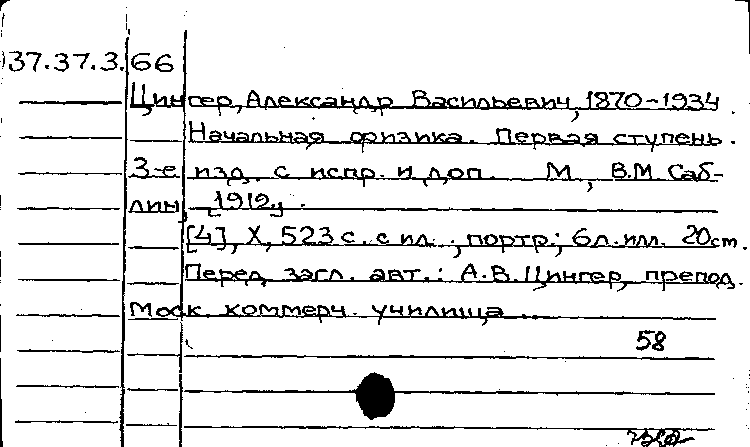 37.37.3.66
Цингер, Александр Васильевич, 1870-1934.
Начальная физика. Первая ступень.
3-е изд. с испр. и доп. М., В.М. Саб-
лин, [1912].
[4], X, 523 с. с ил., портр.; 6 л. илл. 20 см.
Перед загл. авт.: А.В. Цингер, препод.
Моск. коммерч. училища ...
58